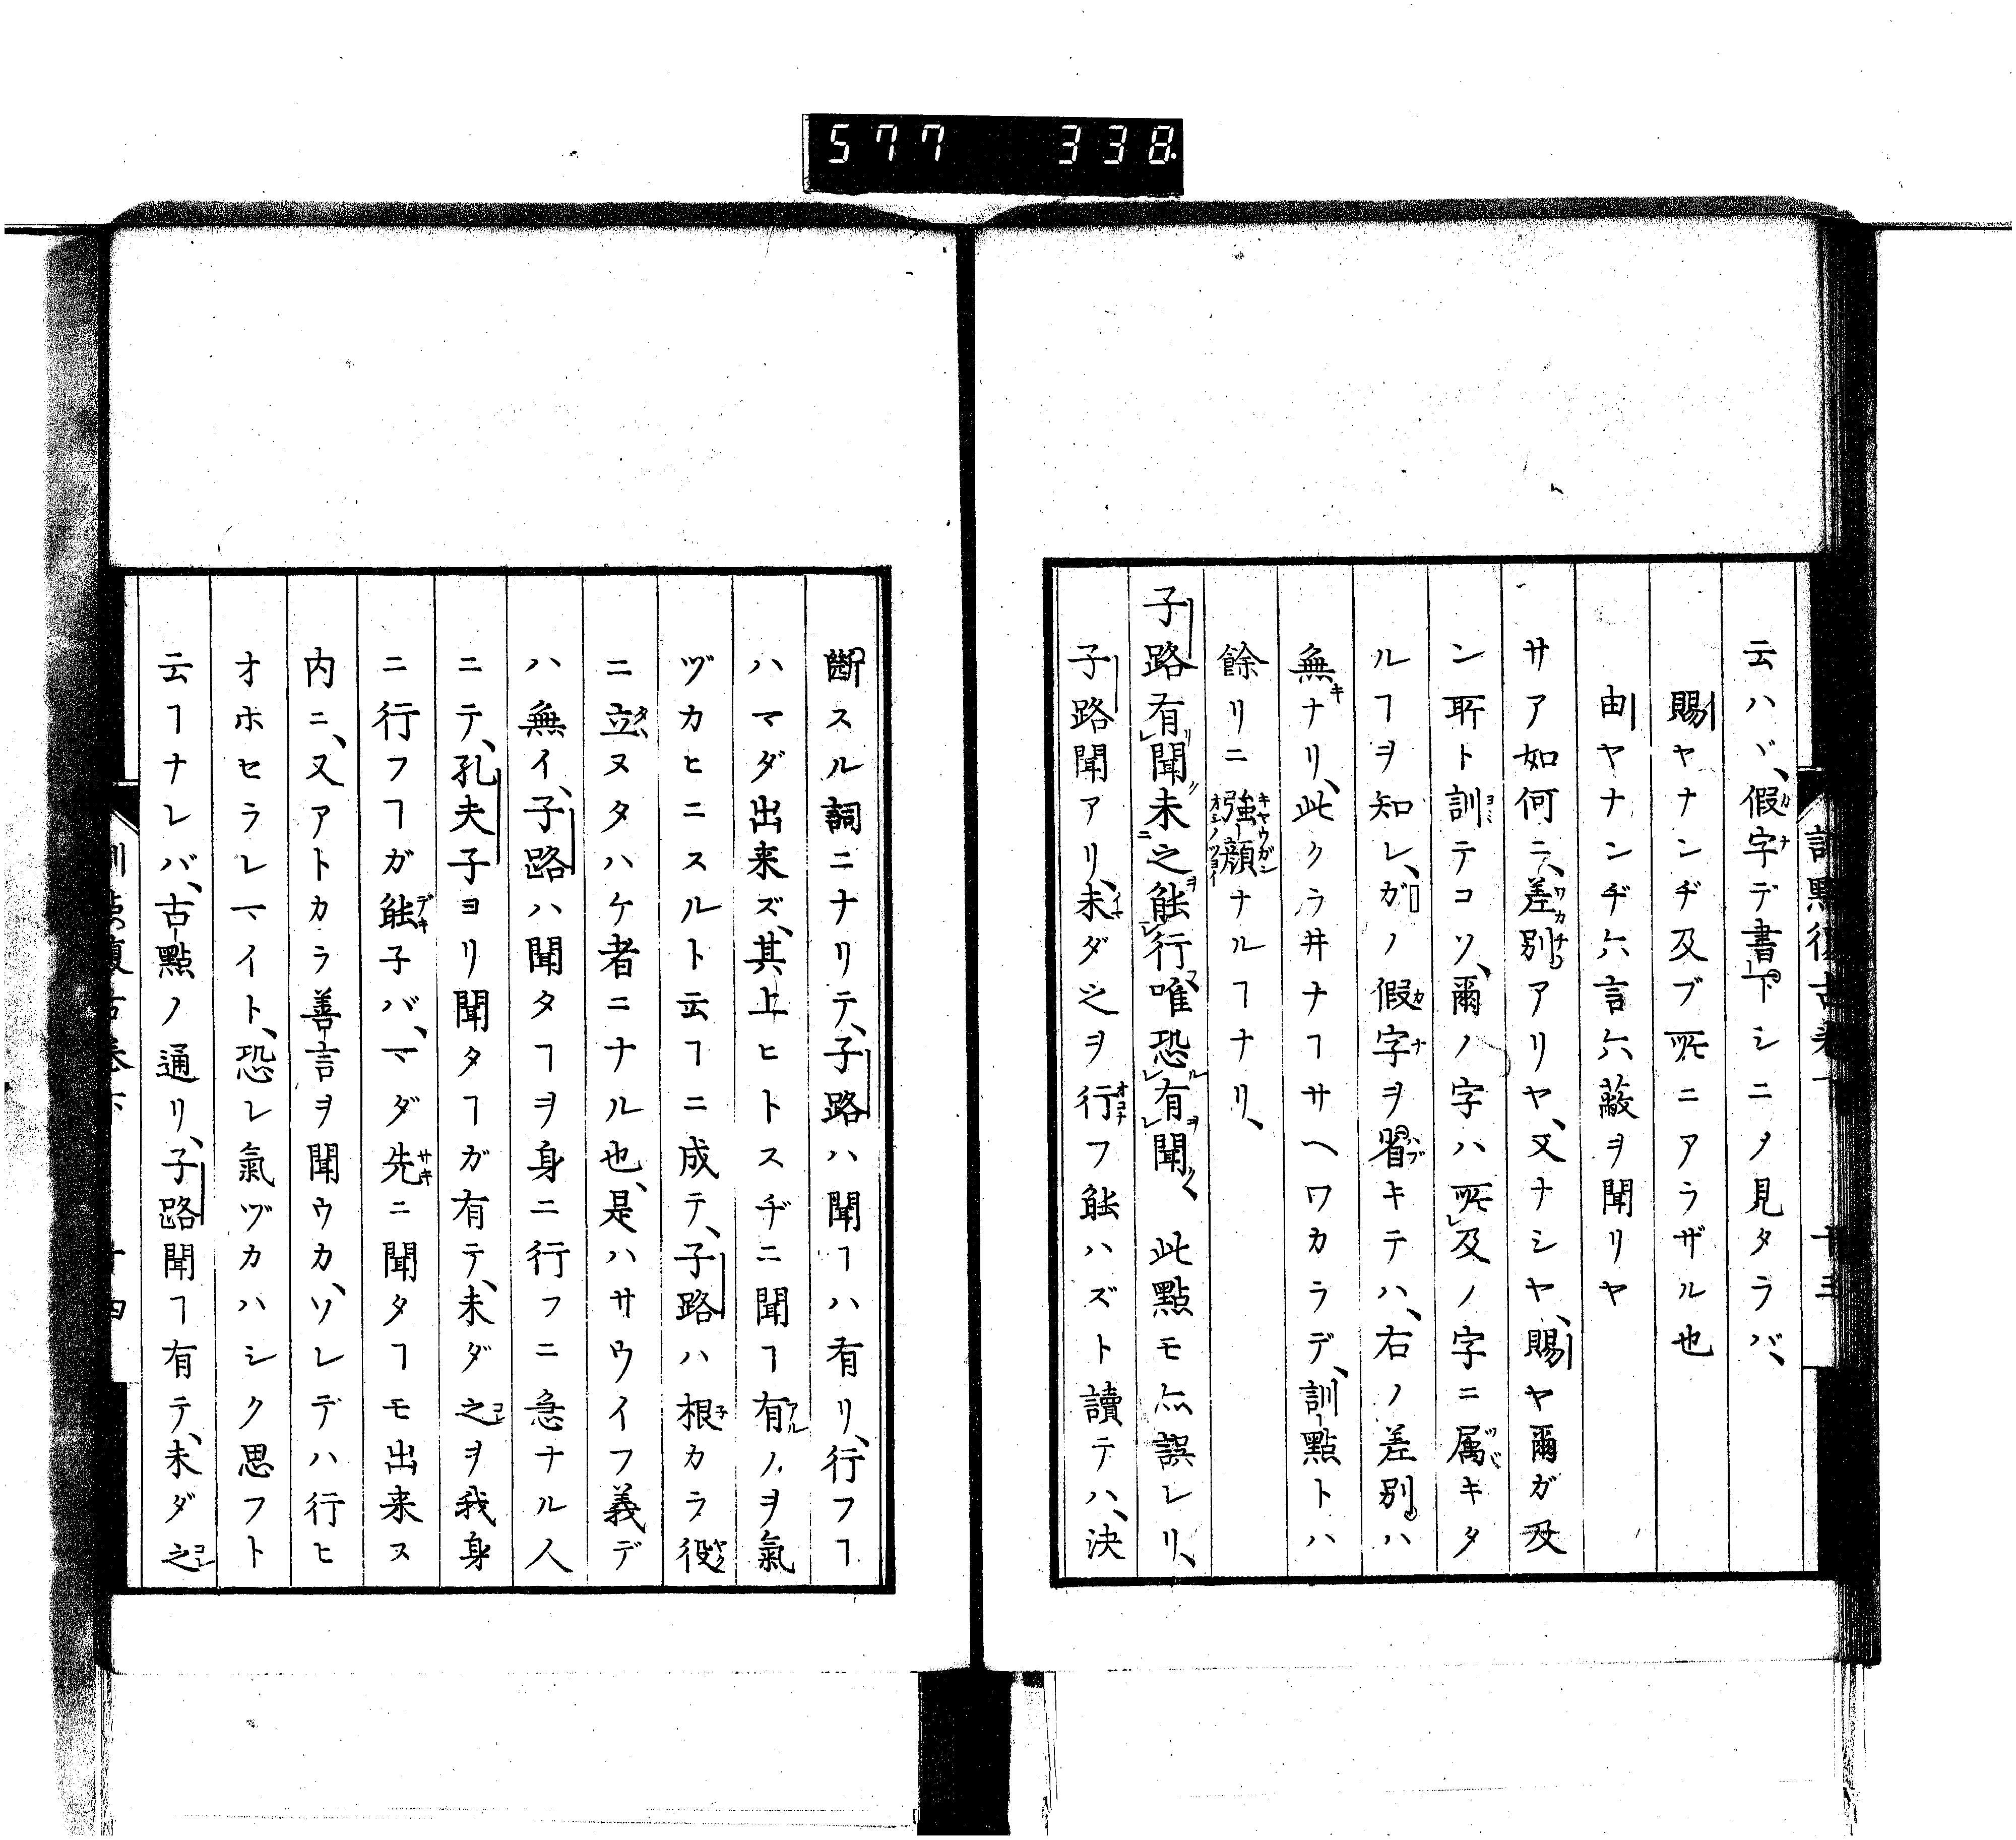 577 338
訓點復古卷下 十三
云ハヾ、假字デ書下シニノ見タラバ、
賜ヤナンヂ及ブ所ニアラザル也
由ヤナンヂ六言六蔽ヲ聞リヤ
サア如何ニ、差別アリヤ、又ナシヤ、賜ヤ爾ガ及
ン所ト訓テコソ、爾ノ字ハ所及ノ字ニ属キタ
ルヿヲ知レ、ガノ假字ヲ省キテハ、右ノ差別ハ
無ナリ、此クラ井ナヿサヘワカラデ、訓點トハ
餘リニ強顔ナルヿナリ、
子路有聞未之能行唯恐有聞、此點モ亦誤レリ、
子路聞アリ、未ダ之ヲ行フ能ハズト讀テハ、決
斷スル詞ニナリテ、子路ハ聞ヿハ有リ、行フヿ
ハマダ出来ズ、其上ヒトスヂニ聞ヿ有ノヲ氣
ヅカヒニスルト云ヿニ成テ、子路ハ根カラ役
ニ立ヌタハケ者ニナル也、是ハサウイフ義デ
ハ無イ、子路ハ聞タヿヲ身ニ行フニ急ナル人
ニテ、孔夫子ヨリ聞タヿガ有テ、未ダ之ヲ我身
ニ行フヿガ能子バ、マダ先ニ聞タヿモ出来ヌ
内ニ、又アトカラ善言ヲ聞ウカ、ソレデハ行ヒ
オホセラレマイト、恐レ氣ヅカハシク思フト
云ヿナレバ、古點ノ通リ、子路聞ヿ有テ、未ダ之
訓點復古卷下 十四